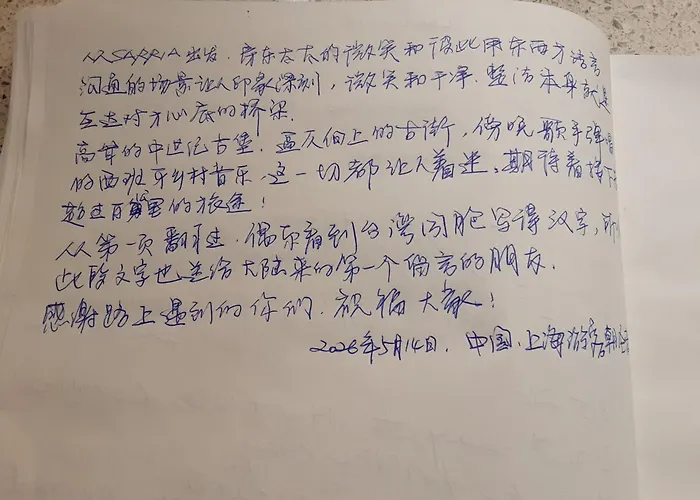 从SARRIA出发,房东太太的微笑和彼此用东西方语言
沟通的场景让人印象深刻,微笑和干净、整洁本身就是
互走对方心底的桥梁.
高耸的中世纪古堡、逼仄向上的古街,傍晚歌手弹唱
的西班牙乡村音乐,这一切都让人着迷,期待着接下来
超过百公里的旅途!
从第一页翻过,偶尔看到台湾同胞写得汉字,所
此段文字也送给大陆来的第一个留言的朋友.
感谢路上遇到的你们.祝福大家!
2026年5月14日. 中国.上海